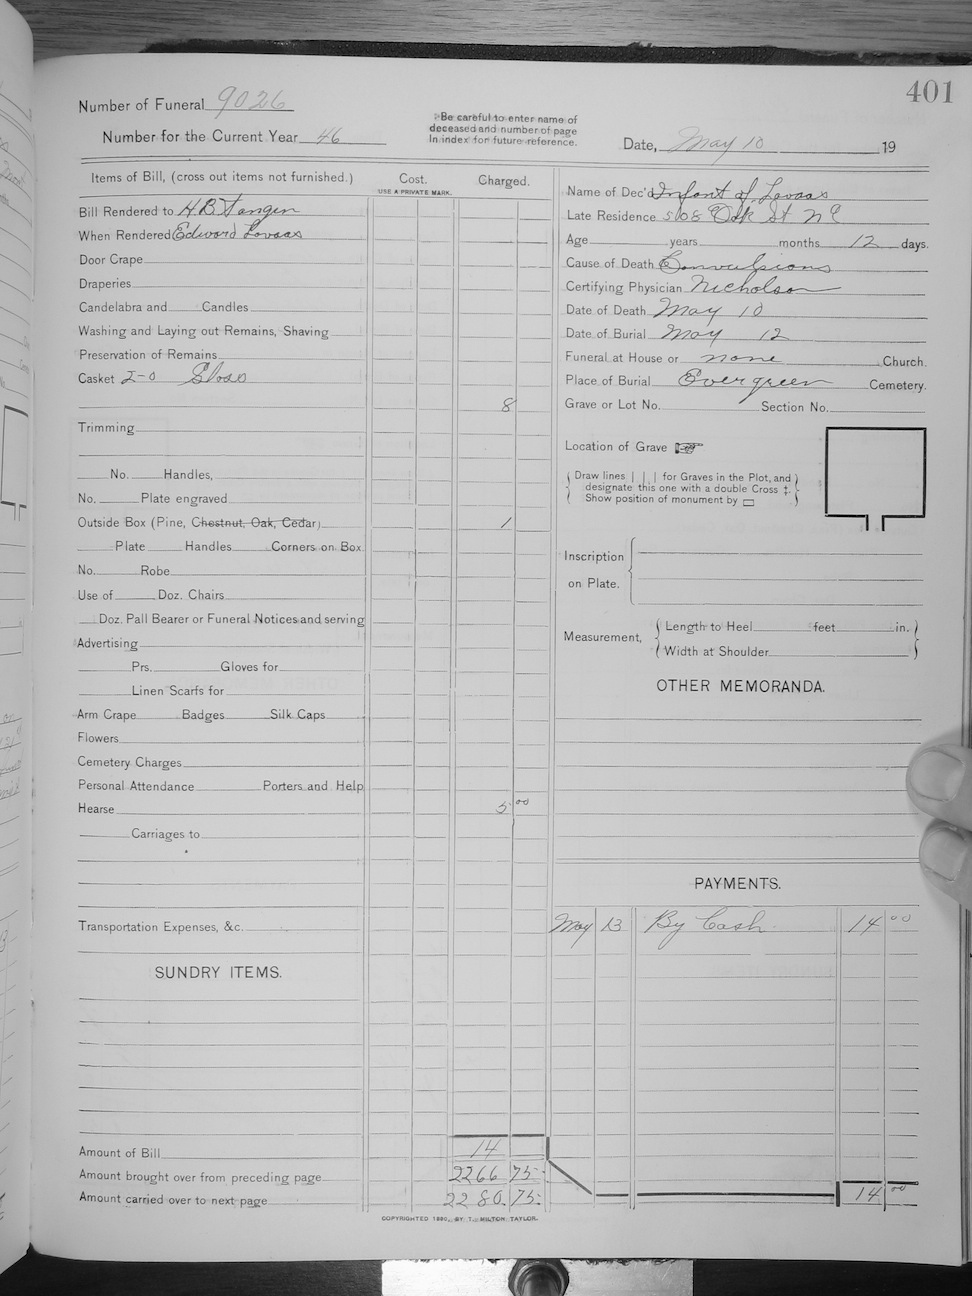 401
Number of Funeral 9026
Number for the Current Year 46
Be careful to enter name of
deceased and number of page
In index for future reference.
Date, May 10 19
Items of Bill, (cross out items not furnished.)
Cost.
USE A PRIVATE MARK.
Charged.
Bill Rendered to H.B. Tangen
When Rendered Edward Lovaas
Door Crape
Draperies
Candelabra and Candles
Washing and Laying out Remains, Shaving
Preservation of Remains
Casket 2-0
8
Trimming
No. Handles,
No. Plate engraved
Outside Box (Pine, Chestnut, Oak, Cedar) 1
Plate Handles Corners on Box
No. Robe
Use of Doz. Chairs
Doz. Pall Bearer or Funeral Notices and serving
Advertising
Prs. Gloves for
Linen Scarfs for
Arm Crape Badges Silk Caps
Flowers
Cemetery Charges
Personal Attendance Porters and Help
Hearse 5 00
Carriages to
Transportation Expenses, &c.
SUNDRY ITEMS.
Amount of Bill 14
Amount brought over from preceding page 2266 75
Amount carried over to next page 2280. 75
Name of Dec'd Infant of Lovaas
Late Residence 5108 Oak St NE
Age years months 12 days.
Cause of Death Convulsions
Certifying Physician Nicholson
Date of Death May 10
Date of Burial May 12
Funeral at House or none Church.
Place of Burial Evergreen Cemetery.
Grave or Lot No. Section No.
Location of Grave
Draw lines | | | for Graves in the Plot, and
designate this one with a double Cross ‡.
Show position of monument by
Inscription
on Plate.
Measurement,
Length to Heel feet in.
Width at Shoulder
OTHER MEMORANDA.
PAYMENTS.
May 13 By Cash 14 00
14 00
COPYRIGHTED 1890, BY T. MILTON TAYLOR.